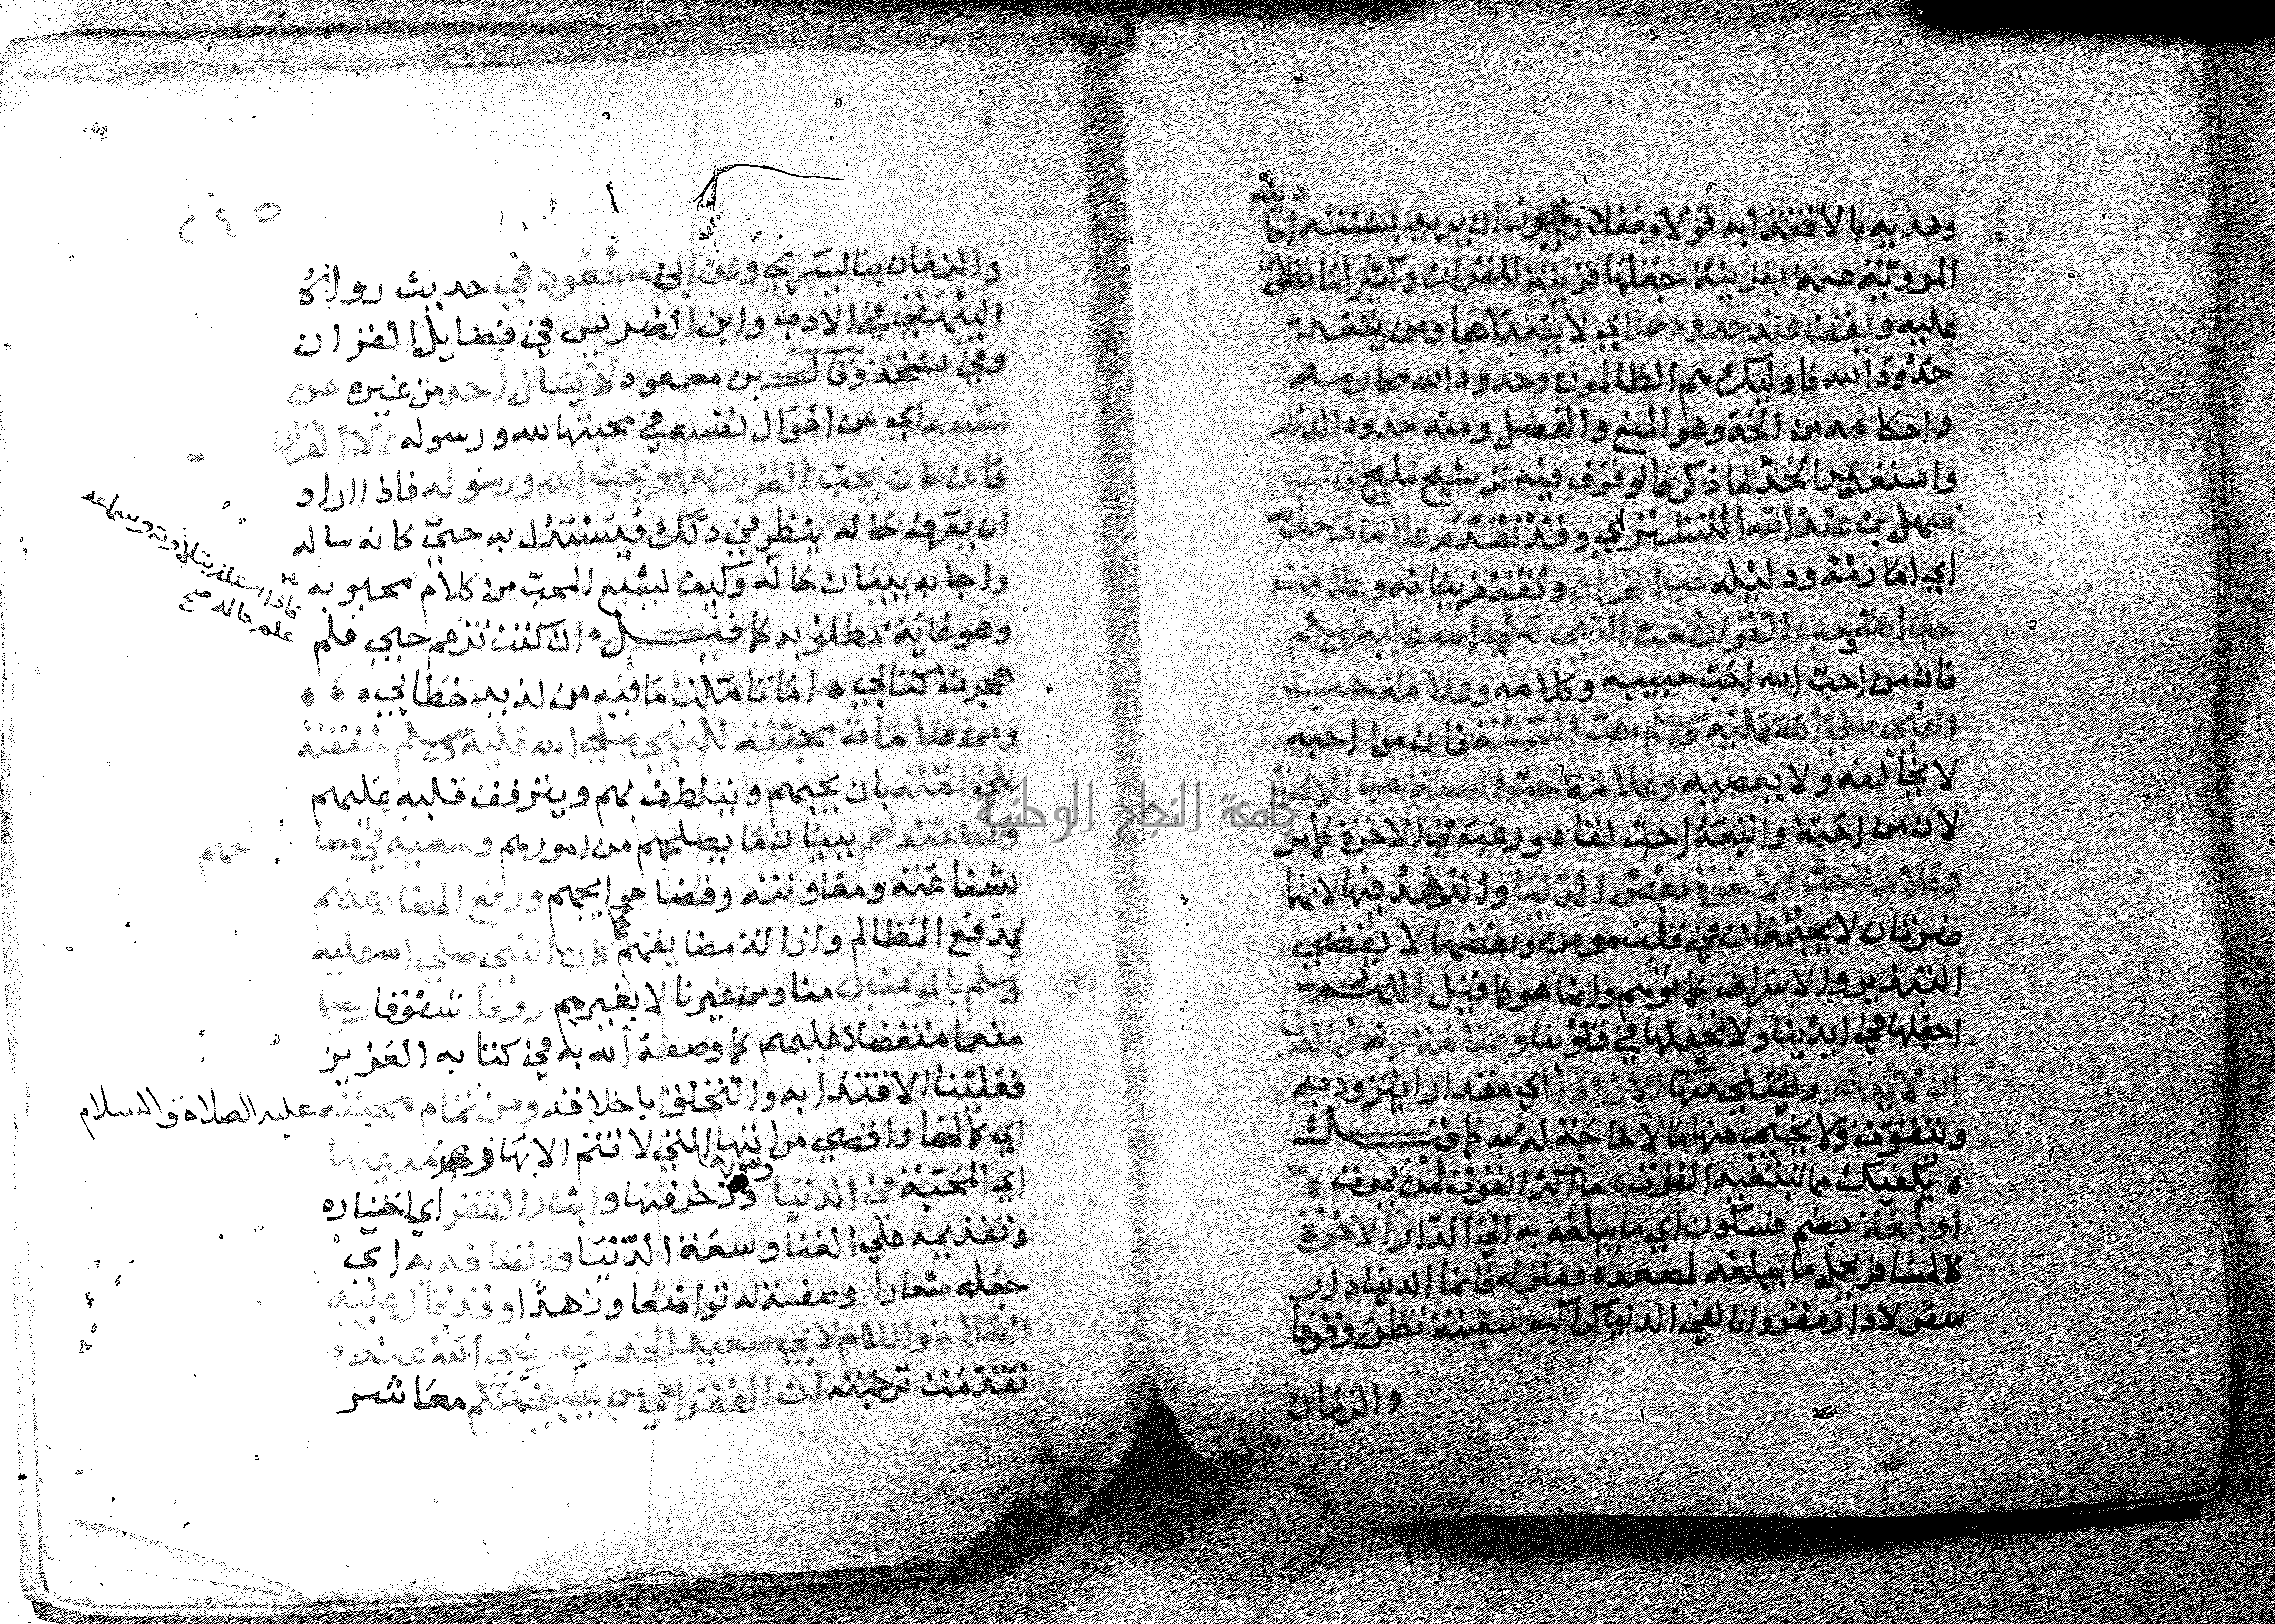 دينه
وهديه بالاقتدا به قولا وفعلا ويجوز ان يريد بسنته احا
المروية عنه بقرينة جعلها قرينة للقران وكثيرا ما تطلق
عليه وليقف عند حدودها اي لا يتعداها ومن يتعد
حدود الله فاوليك هم الظالمون وحدود الله محارمه
واحكامه من الحد وهو المنع والفصل ومنه حدود الدار
واستعير الحد لما ذكر فالوقوف فيه ترشيح مليح قال
سهل بن عبد الله التستري وقد تقدم علامة حب الله
اي امارته ودليله حب القران وتقدم بيانه وعلامة
حب الله وحب القران حب النبي صلي الله عليه وسلم
فان من احب الله احب حبيبه وكلامه وعلامة حب
النبي صلي الله عليه وسلم حب السنة فان من احبه
لا يخالفه ولا يعصيه وعلامة حب السنة حب الاخرة
لان من احبه واتبعه احب لقاه ورغب في الاخرة كما مر
وعلامة حب الاخرة بغض الدنيا والزهد فيها لانها
ضرتان لا يجتمعان في قلب مومن وبغضها لا يقتضي
التبذير والاسراف كما توهم وانما هو كما قيل اللهم
اجعلها في ايدينا ولا تجعلها في قلوبنا وعلامة بغض الدنيا
ان لا يدخر ويقتني منها الا زادا اي مقدارا يتزود به
ويتقوت ولا يخبي منها ما لا حاجة له به كما قيل
يكفيك مما تبتغيه القوت ما اكثر القوت لمن يموت
او بلغة بضم فسكون اي ما يبلغه به الي الدار الاخرة
كالمسافر يحمل ما يبلغه لمقصده ومنزله فانما الدنيا دار
سفر لا دار مقر وانا لفي الدنيا كراكب سفينة نظن وقوفا
والزمان
٢٤٥
والزمان بنا ليسري وعن ابن مسعود في حديث رواه
البيهقي في الادب وابن الضريس في فضايل القران
وفي نسخة وقال بن مسعود لا يسال احد من غيره عن
نفسه اي عن احوال نفسه في محبتها لله ورسوله الا القران
فان كان يحب القران فهو يحب الله ورسوله فاذا اراد
ان يعرف حاله ينظر في ذلك فيستدل به حتي كانه ساله
واجابه ببيان حاله وكيف يشبع المحب من كلام محبوبه
فاذا استلذ بتلاوته وسماعه
علم حاله صح
وهو غاية مطلوبه كما قيل ان كنت تزعم حبي فلم
هجرت كتابي اما تاملت ما فيه من لذيذ خطابي
ومن علامات محبته للنبي صلي الله عليه وسلم شفقته
علي امته بان يحبهم ويتلطف بهم ويترفق قلبه عليهم
ونصحته لهم ببيان ما يصلحهم من امورهم وسعيه في مصا لحهم
بشفاعته ومعاونته وقضا حوايجهم ورفع المضار عنهم
بدفع المظالم وازالة مضايقتهم كما كان النبي صلي الله عليه
وسلم بالمومنين منا ومن غيرنا لا بغيرهم روفا شفوقا رحيما
منعما متفضلا عليهم كما وصفه الله به في كتابه العزيز
فعلينا الاقتدا به والتخلق باخلاقه ومن تمام محبته عليه الصلاة والسلام
اي كمالها واقصي مراتبها التي لا تتم الا بها زهد مدعيها
اي المحبة في الدنيا وزخرفتها وايثار الفقر اي اختياره
وتقديمه علي الغنا وسعة الدنيا واتصافه به اي
جعله شعارا وصفة له تواضعا وزهدا وقد قال عليه
الصلاة والسلام لابي سعيد الخدري رضي الله عنه
تقدمت ترجمته ان الفقر الي من يحبني منكم معاشر
جامعة النجاح الوطنية